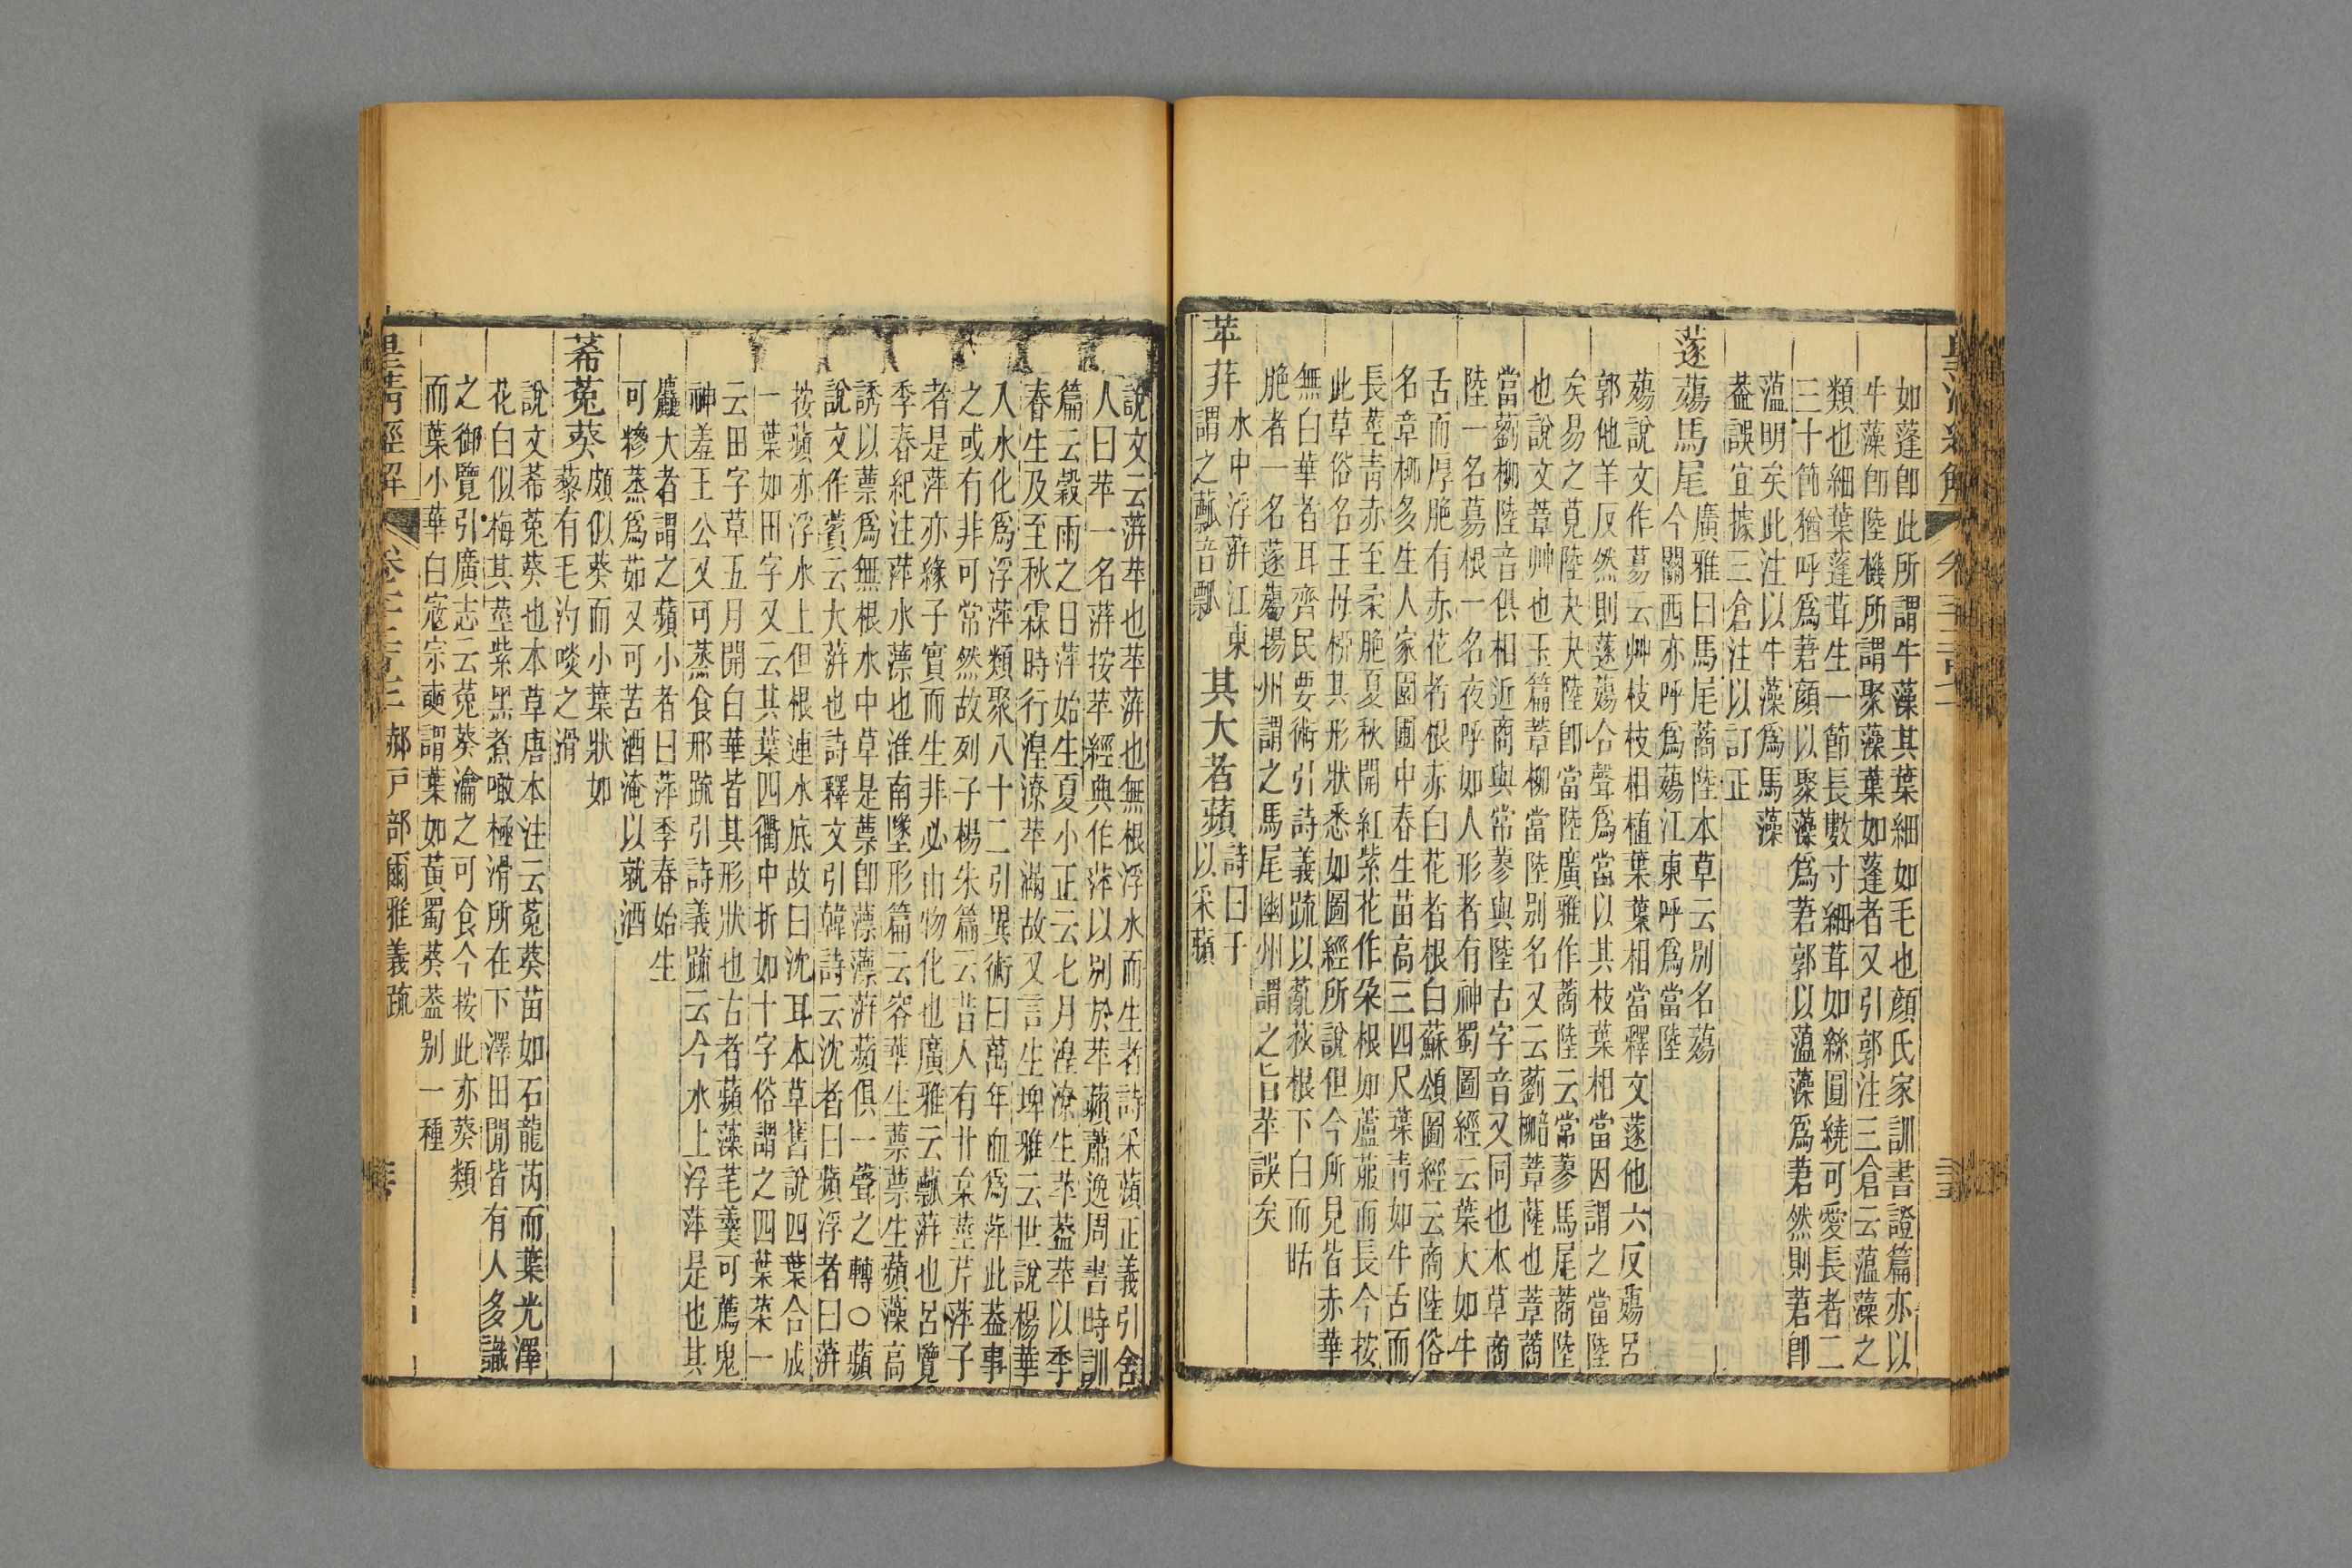 如蓬卽此所謂牛藻其葉細如毛也顏氏家訓書證篇亦以
牛藻卽陸機所謂聚藻葉如蓬者又引郭注三倉云薀藻之
類也細葉蓬茸生一節長數寸細茸如絲圓繞可愛長者二
三十節猶呼爲莙顏以聚藻爲莙郭以薀藻爲莙然則莙卽
薀明矣此注以牛藻爲馬藻
葢誤宜據三倉注以訂正
蓫薚馬尾
廣雅曰馬尾蔏陸本草云別名薚
今關西亦呼爲薚江東呼爲當陸
薚說文作募云艸枝枝相植葉葉相當釋文蓫他六反薚呂
郭他羊反然則蓫薚合聲爲當以其枝葉相當因謂之當陸
矣易之莧陸夬夬陸卽當陸廣雅作蔏陸云常蓼馬尾蔏陸
也說文葦艸也玉篇葦柳當陸別名又云藰 葦薩也葦蔏
當藰柳陸音俱相近商與常蓼與陸古字音又同也本草商
陸一名募根一名夜呼如人形者有神蜀圖經云葉大如牛
舌而厚脆有赤花者根赤白花者根白蘇頌圖經云商陸俗
名章柳多生人家園圃中春生苗高三四尺葉靑如牛舌而
長莖靑赤至柔脆夏秋開紅紫花作朶根如蘆菔而長今按
此草俗名王母 其形狀悉如圖經所說但今所見皆赤華
無白華者耳齊民要術引詩義疏以薍荻根下白而 
脆者一名蓫薚揚州謂之馬尾幽州謂之旨苹誤矣
苹蓱
水中浮蓱江東
謂之薸音瓢
其大者蘋
詩曰于
以采蘋
說文云蓱苹也苹蓱也無根浮水而生者詩采蘋正義引舍
人曰苹一名蓱按苹經典作萍以別於苹藾蕭逸周書時訓
篇云穀雨之日萍始生夏小正云七月湟潦生苹葢苹以季
春生及至秋霖時行湟潦苹滿故又言生埤雅云世說楊華
入水化爲浮萍類聚八十二引異術曰萬年血爲萍此葢事
之或有非可常然故列子楊朱篇云昔人有甘枲莖芹萍子
者是萍亦緣子實而生非必由物化也廣雅云薸蓱也呂覽
季春紀注萍水薸也淮南墬形篇云容華生蔈蔈生蘋藻高
誘以蔈爲無根水中草是蔈卽薸薸蓱蘋俱一聲之轉○蘋
說文作薲云大蓱也詩釋文引韓詩云沈者曰蘋浮者曰蓱
按蘋亦浮水上但根連水底故曰沈耳本草舊說四葉合成
一葉如田字又云其葉四衢中折如十字俗謂之四葉菜一
云田字草五月開白華皆其形狀也古者蘋藻芼羹可薦鬼
神羞王公又可蒸食邢疏引詩義疏云今水上浮萍是也其
麤大者謂之蘋小者曰萍季春始生
可糝蒸爲茹又可苦酒淹以就酒
莃菟葵
頗似葵而小葉狀如
藜有毛汋啖之滑
說文莃菟葵也本草唐本注云菟葵苗如石龍芮而葉光澤
花白似梅其莖紫黑煮噉極滑所在下澤田閒皆有人多識
之御覽引廣志云菟葵瀹之可食今按此亦葵類
而葉小華白寇宗奭謂葉如黃蜀葵葢别一種
皇淸經解
郝戸部爾雅義疏